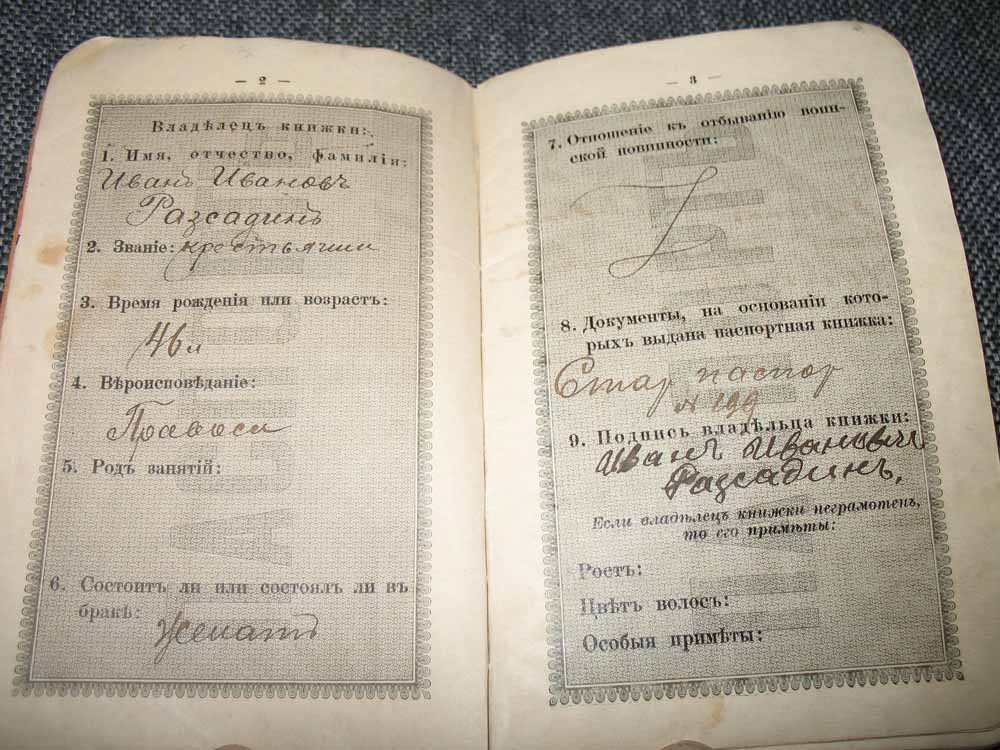 — 2 —
Владѣлецъ книжки:
1. Имя, отчество, фамилія:
Иванъ Ивановъ
Разсадинъ
2. Званіе: крестьянин
3. Время рожденія или возрастъ:
46 л
4. Вѣроисповѣданіе:
Правосл
5. Родъ занятій:
6. Состоитъ ли или состоялъ ли въ
бракѣ:
Женатъ
— 3 —
7. Отношеніе къ отбыванію воин-
ской повинности:
8. Документы, на основаніи кото-
рыхъ выдана паспортная книжка:
Стар паспор
№ 199
9. Подпись владѣльца книжки:
Иванъ Ивановичъ
Разсадинъ,
Если владѣлецъ книжки неграмотенъ,
то его примѣты:
Ростъ:
Цвѣтъ волосъ:
Особыя примѣты: